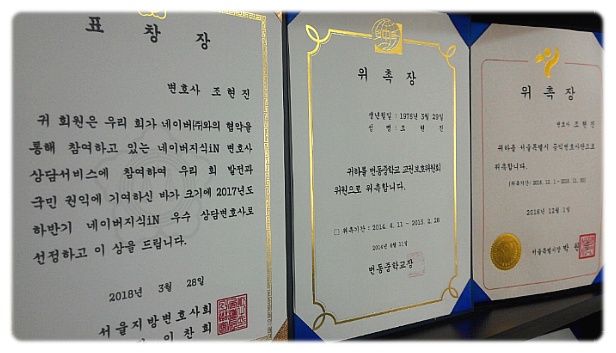 표 창 장
변호사 조 현 진
귀 회원은 우리 회가 네이버㈜와의 협약을
통해 참여하고 있는 네이버지식iN 변호사
상담서비스에 참여하여 우리 회 발전과
국민 권익에 기여하신 바가 크기에 2017년도
하반기 네이버지식iN 우수 상담변호사로
선정하고 이 상을 드립니다.
2018년 3월 28일
서울지방변호사회
이 찬 희
위 촉 장
생년월일 : 1978년 3월 29일
성 명 : 조 현 진
귀하를 번동중학교 교권보호위원회
위원으로 위촉합니다.
□ 위촉기간 : 2014. 4. 11 ~ 2015. 2. 28
2014년 4월 11일
번동중학교장
위 촉 장
변호사 조 현 진
귀하를 서울특별시 공익변호사단으로
위촉합니다.
2016년 12월 1일
서울특별시장 박 원